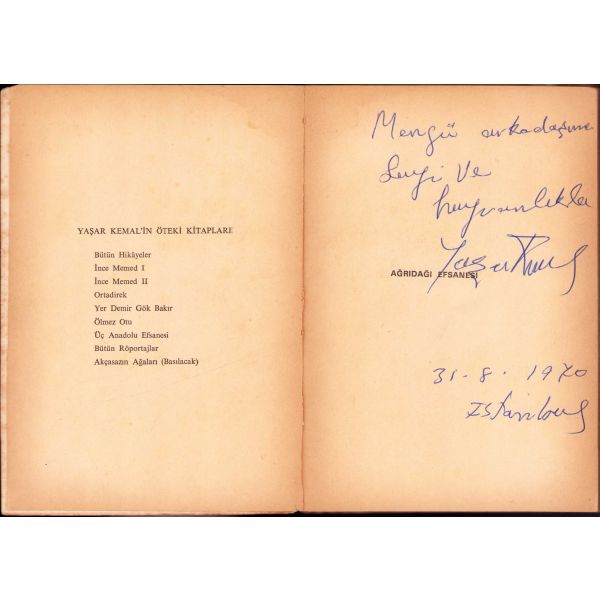 YAŞAR KEMAL'İN ÖTEKİ KİTAPLARI
Bütün Hikâyeler
İnce Memed I
İnce Memed II
Ortadirek
Yer Demir Gök Bakır
Ölmez Otu
Üç Anadolu Efsanesi
Bütün Röportajlar
Akçasazın Ağaları (Basılacak)
Mengü arkadaşıma
Sevgi Ve
hayranlıkla
Yaşar Kemal
AĞRIDAĞI EFSANESİ
31-8.1970
İstanbul